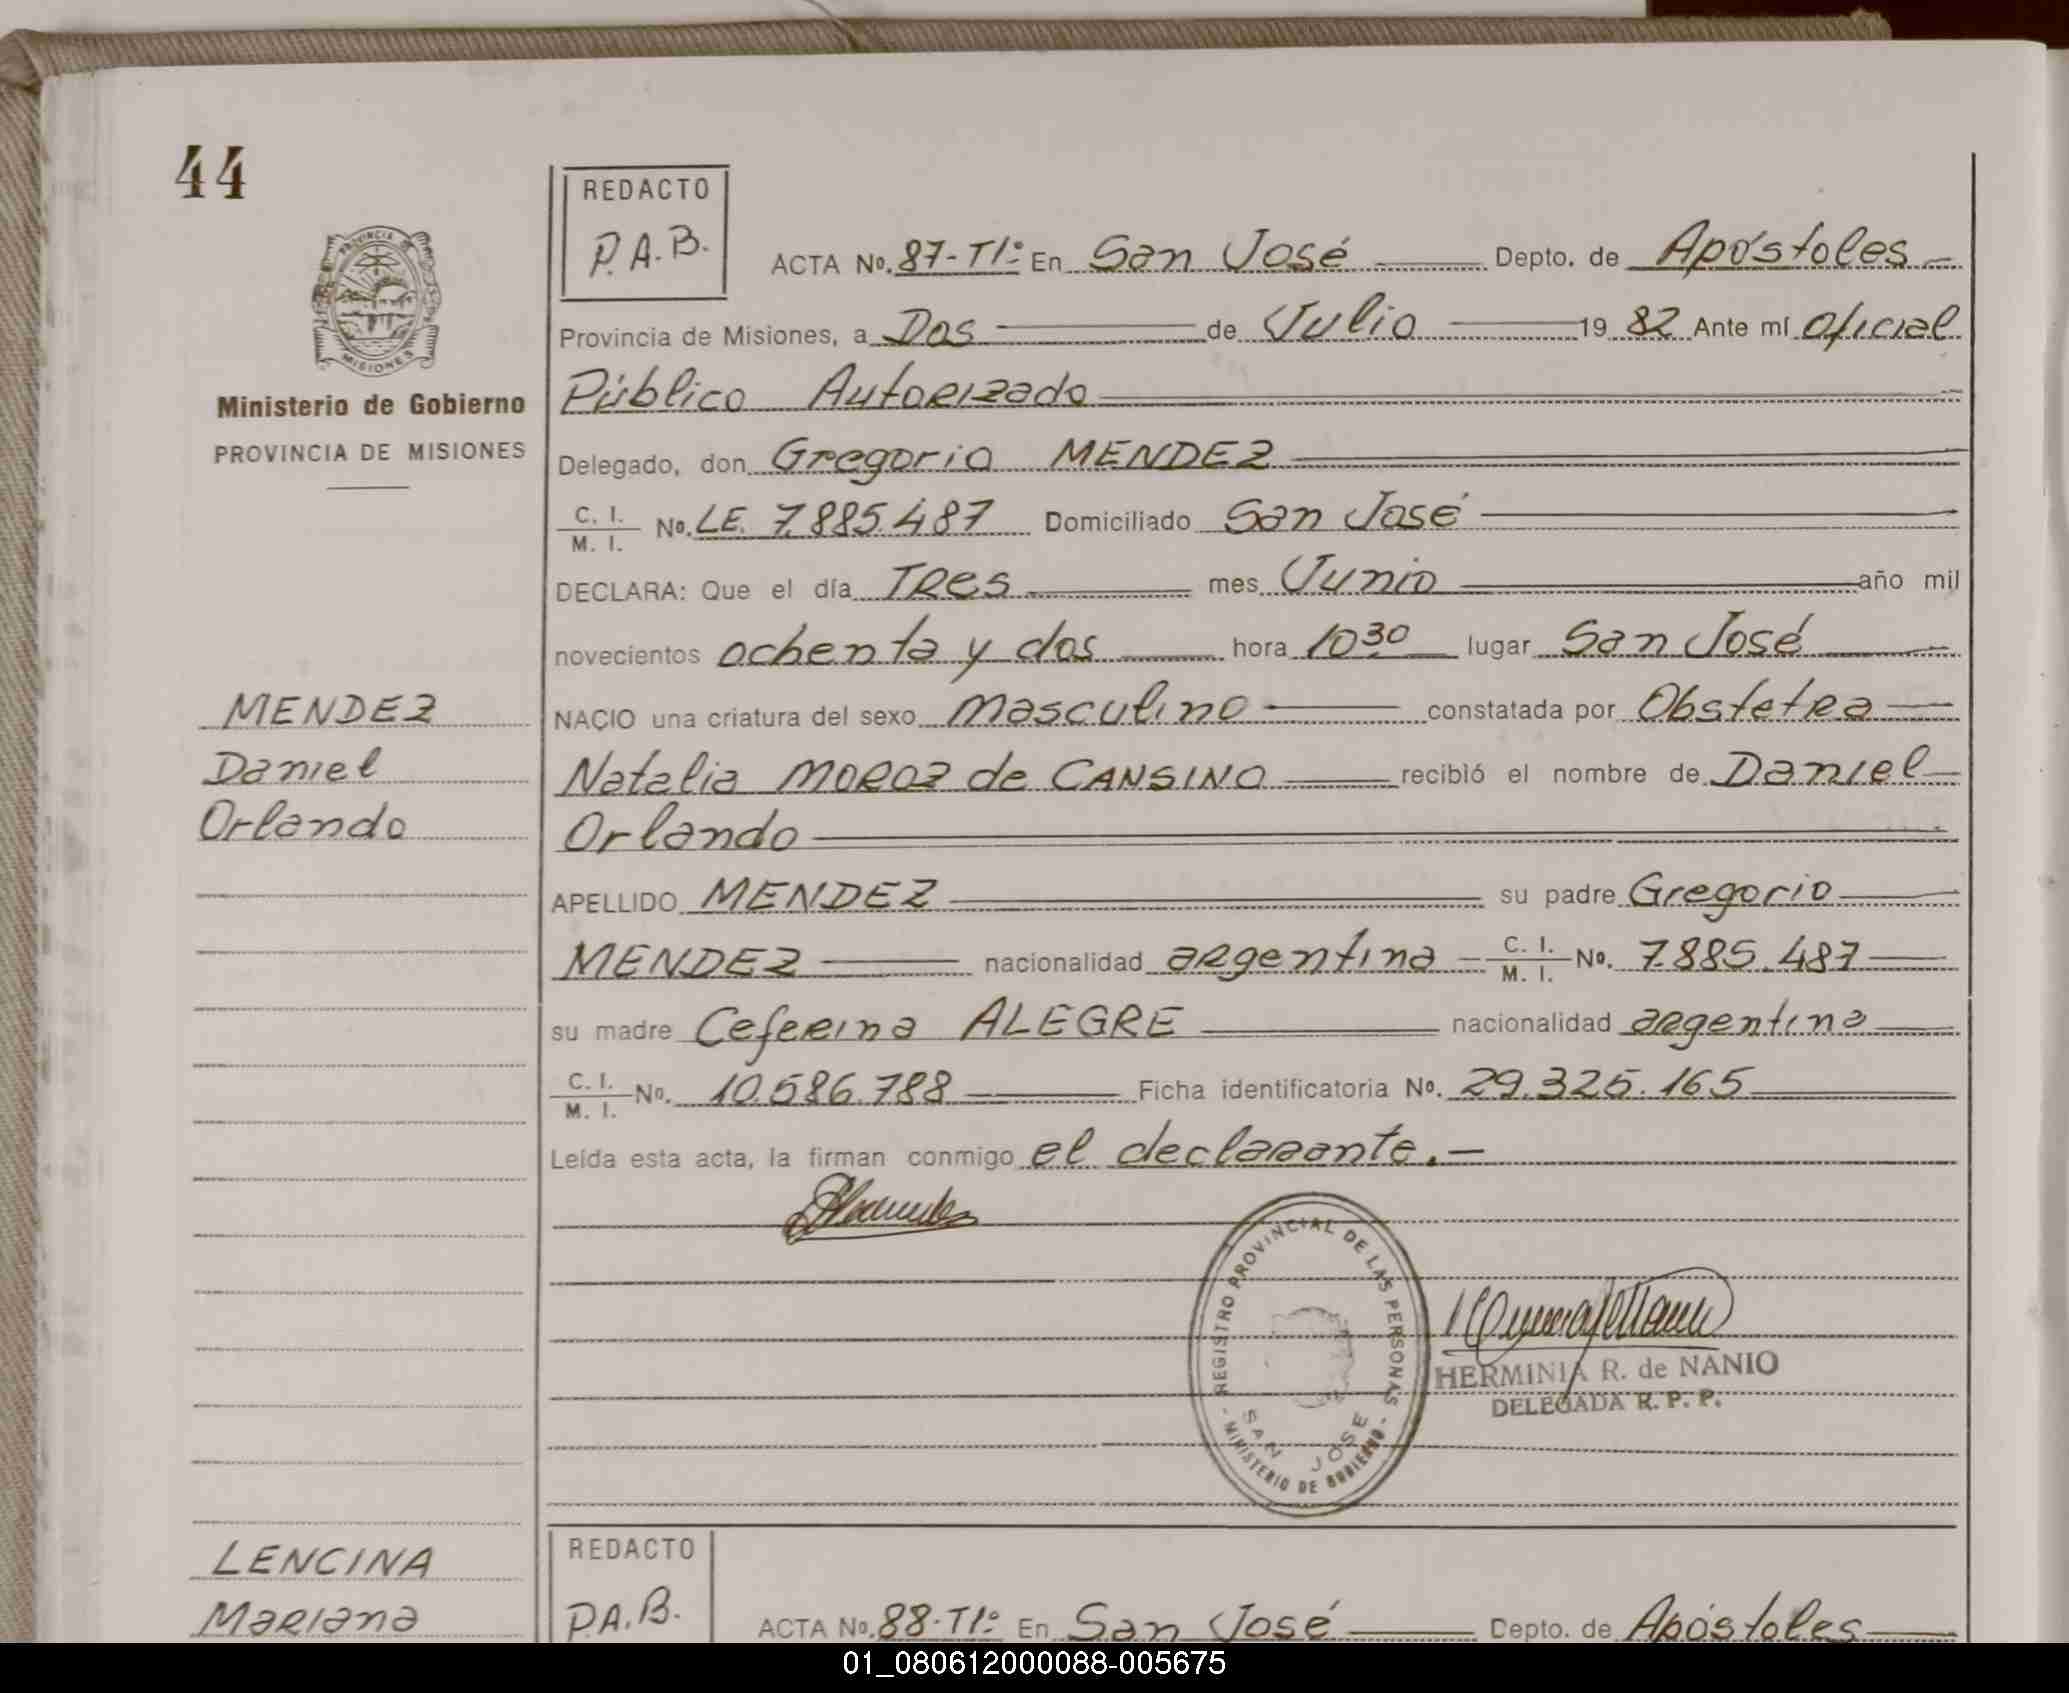 44
PROVINCIA DE MISIONES
Ministerio de Gobierno
PROVINCIA DE MISIONES
REDACTO
P.A.B.
ACTA No. 87-T1º En San José Depto. de Apóstoles
Provincia de Misiones, a Dos de Julio 19 82 Ante mí oficial
Público Autorizado
Delegado, don Gregorio MENDEZ
C. I. / M. I. No. LE. 7.885.487 Domiciliado San José
DECLARA: Que el día Tres mes Junio año mil
novecientos ochenta y dos hora 10 30 lugar San José
NACIO una criatura del sexo masculino constatada por Obstetra
Natalia MOROZ de CANSINO recibió el nombre de Daniel
Orlando
APELLIDO MENDEZ su padre Gregorio
MENDEZ nacionalidad argentina C. I. / M. I. No. 7.885.487
su madre Ceferina ALEGRE nacionalidad argentina
C. I. / M. I. No. 10.586.788 Ficha identificatoria No. 29.325.165
Leída esta acta, la firman conmigo el declarante.-
MENDEZ
Daniel
Orlando
REGISTRO PROVINCIAL DE LAS PERSONAS
- MINISTERIO DE GOBIERNO -
SAN JOSE
HERMINIA R. de NANIO
DELEGADA R. P. P.
LENCINA
Mariana
REDACTO
P.A.B.
ACTA No. 88-T1º En San José Depto. de Apóstoles
01_080612000088-005675